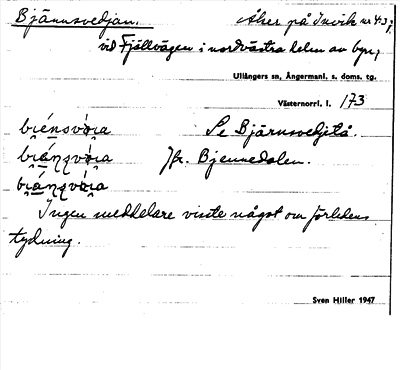 Bjännsvedjan. Åker på Invik nr 4:3;
vid Fjällvägen i nordvästra delen av byn,
Ullångers sn, Ångermanl. s. doms. tg.
Västernorrl. l. 173
Se Bjärnsvedjetå.
Jfr. Bjennedalen.
Ingen meddelare visste något om förledens
tydning.
Sven Hiller 1947